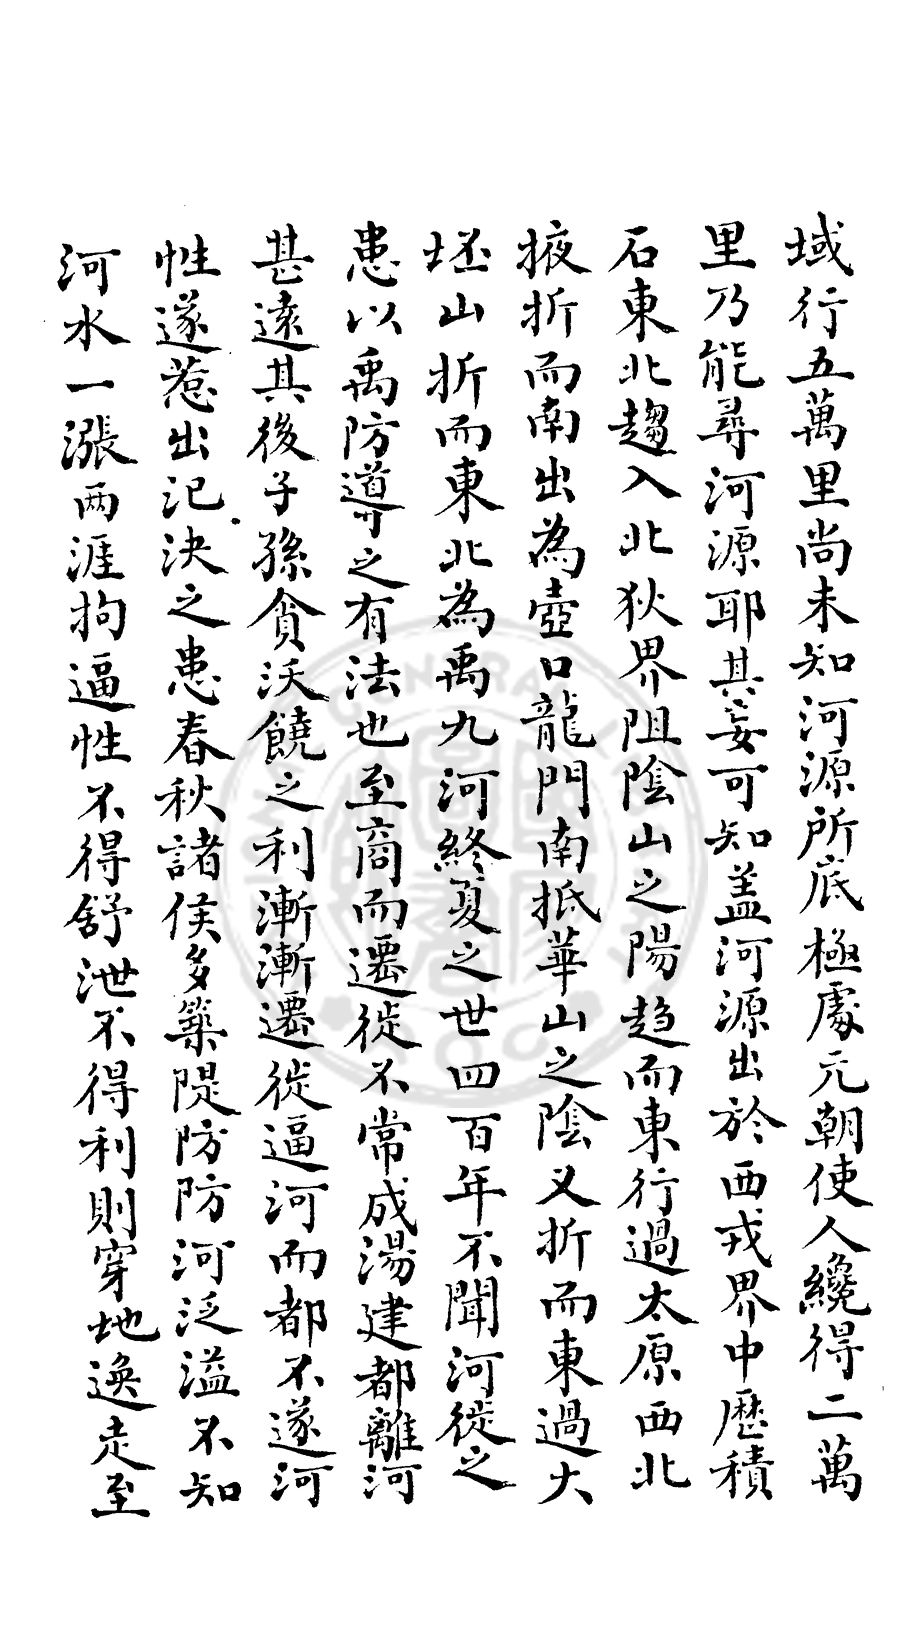 域行五萬里尚未知河源所底極處元朝使人纔得二萬
里乃能尋河源耶其妄可知盖河源出於西戎界中歷積
石東北趨入北狄界阻陰山之陽趋而東行過太原西北
掖折而南出為壺口龍門南抵華山之陰又折而東過大
坯山折而東北為禹九河終夏之世四百年不聞河徙之
患以禹防導之有法也至商而遷徙不常成湯建都離河
甚遠其後子孫貪沃饒之利漸漸遷徙逼河而都不遂河
性遂惹出汜決之患春秋諸侯多築隄防防河泛溢不知
河水一漲两涯拘逼性不得舒泄不得利則穿地逸走至